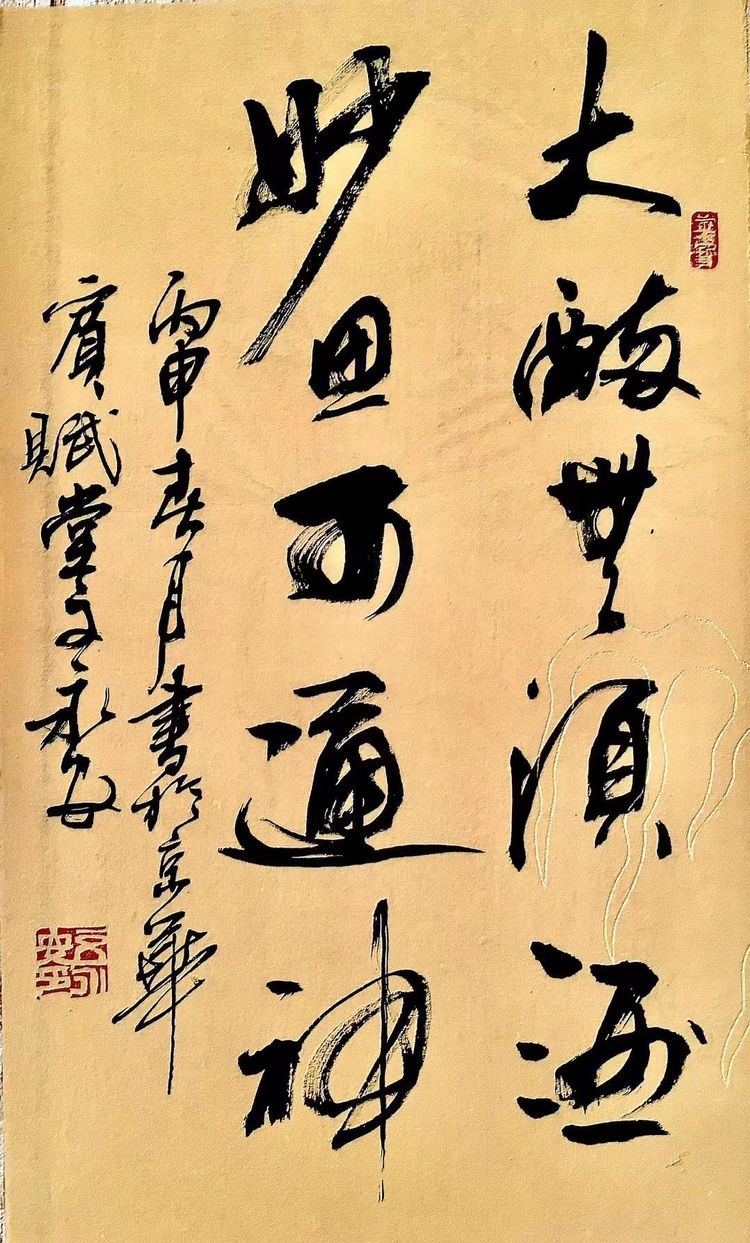 大醉無須酒
妙思可通神
丙申春月書於京華
賦堂永安